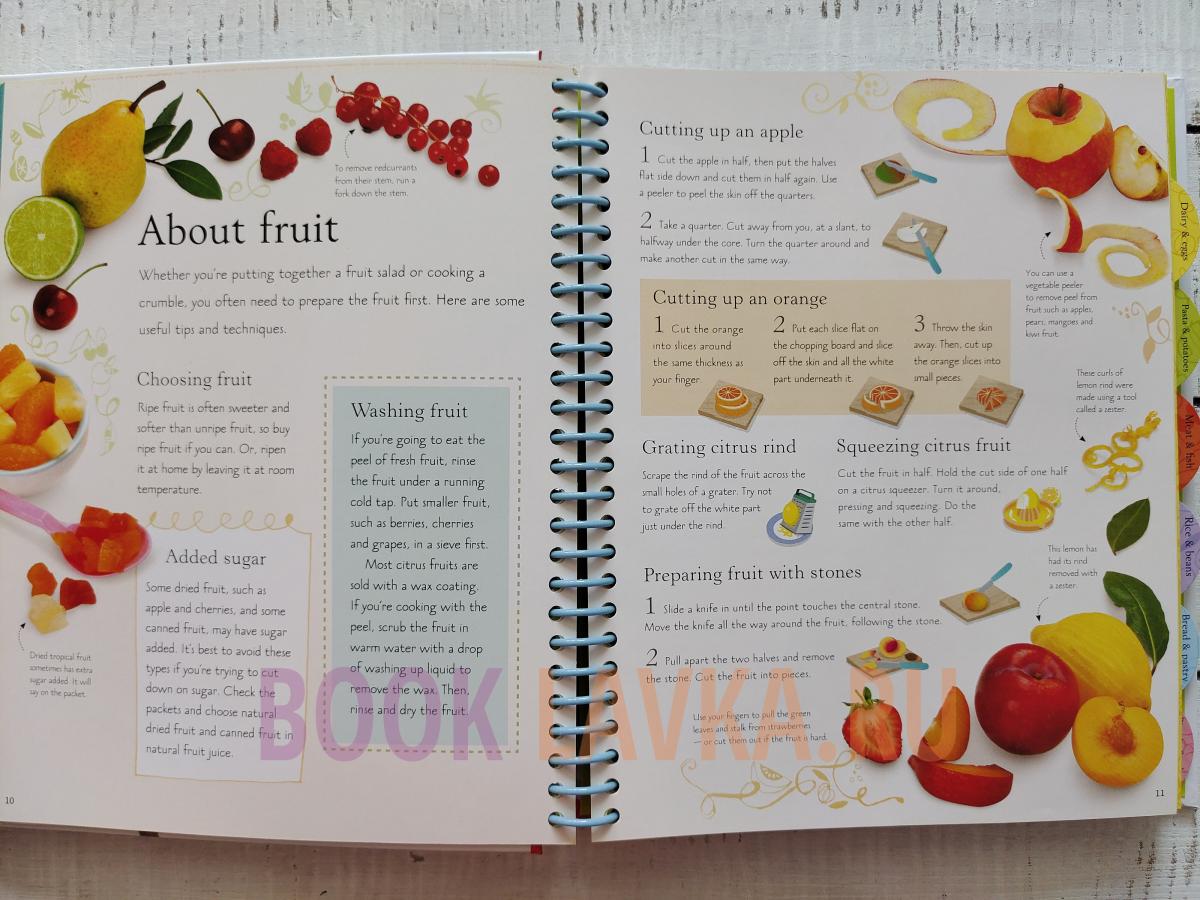 To remove redcurrants
from their stem, run a
fork down the stem.
About fruit
Whether you're putting together a fruit salad or cooking a
crumble, you often need to prepare the fruit first. Here are some
useful tips and techniques.
Choosing fruit
Ripe fruit is often sweeter and
softer than unripe fruit, so buy
ripe fruit if you can. Or, ripen
it at home by leaving it at room
temperature.
Added sugar
Some dried fruit, such as
apple and cherries, and some
canned fruit, may have sugar
added. It's best to avoid these
types if you're trying to cut
down on sugar. Check the
packets and choose natural
dried fruit and canned fruit in
natural fruit juice.
Dried tropical fruit
sometimes has extra
sugar added. It will
say on the packet.
Washing fruit
If you're going to eat the
peel of fresh fruit, rinse
the fruit under a running
cold tap. Put smaller fruit,
such as berries, cherries
and grapes, in a sieve first.
Most citrus fruits are
sold with a wax coating.
If you're cooking with the
peel, scrub the fruit in
warm water with a drop
of washing up liquid to
remove the wax. Then,
rinse and dry the fruit.
10
Cutting up an apple
1 Cut the apple in half, then put the halves
flat side down and cut them in half again. Use
a peeler to peel the skin off the quarters.
2 Take a quarter. Cut away from you, at a slant, to
halfway under the core. Turn the quarter around and
make another cut in the same way.
You can use a
vegetable peeler
to remove peel from
fruit such as apples,
pears, mangoes and
kiwi fruit.
Cutting up an orange
1 Cut the orange
into slices around
the same thickness as
your finger.
2 Put each slice flat on
the chopping board and slice
off the skin and all the white
part underneath it.
3 Throw the skin
away. Then, cut up
the orange slices into
small pieces.
These curls of
lemon rind were
made using a tool
called a zester.
Grating citrus rind
Scrape the rind of the fruit across the
small holes of a grater. Try not
to grate off the white part
just under the rind.
Squeezing citrus fruit
Cut the fruit in half. Hold the cut side of one half
on a citrus squeezer. Turn it around,
pressing and squeezing. Do the
same with the other half.
This lemon has
had its rind
removed with
a zester.
Preparing fruit with stones
1 Slide a knife in until the point touches the central stone.
Move the knife all the way around the fruit, following the stone.
2 Pull apart the two halves and remove
the stone. Cut the fruit into pieces.
Use your fingers to pull the green
leaves and stalk from strawberries
– or cut them out if the fruit is hard.
11
Dairy & eggs
Pasta & potatoes
Meat & fish
Rice & beans
Bread & pastry
BOOK LAVKA.RU